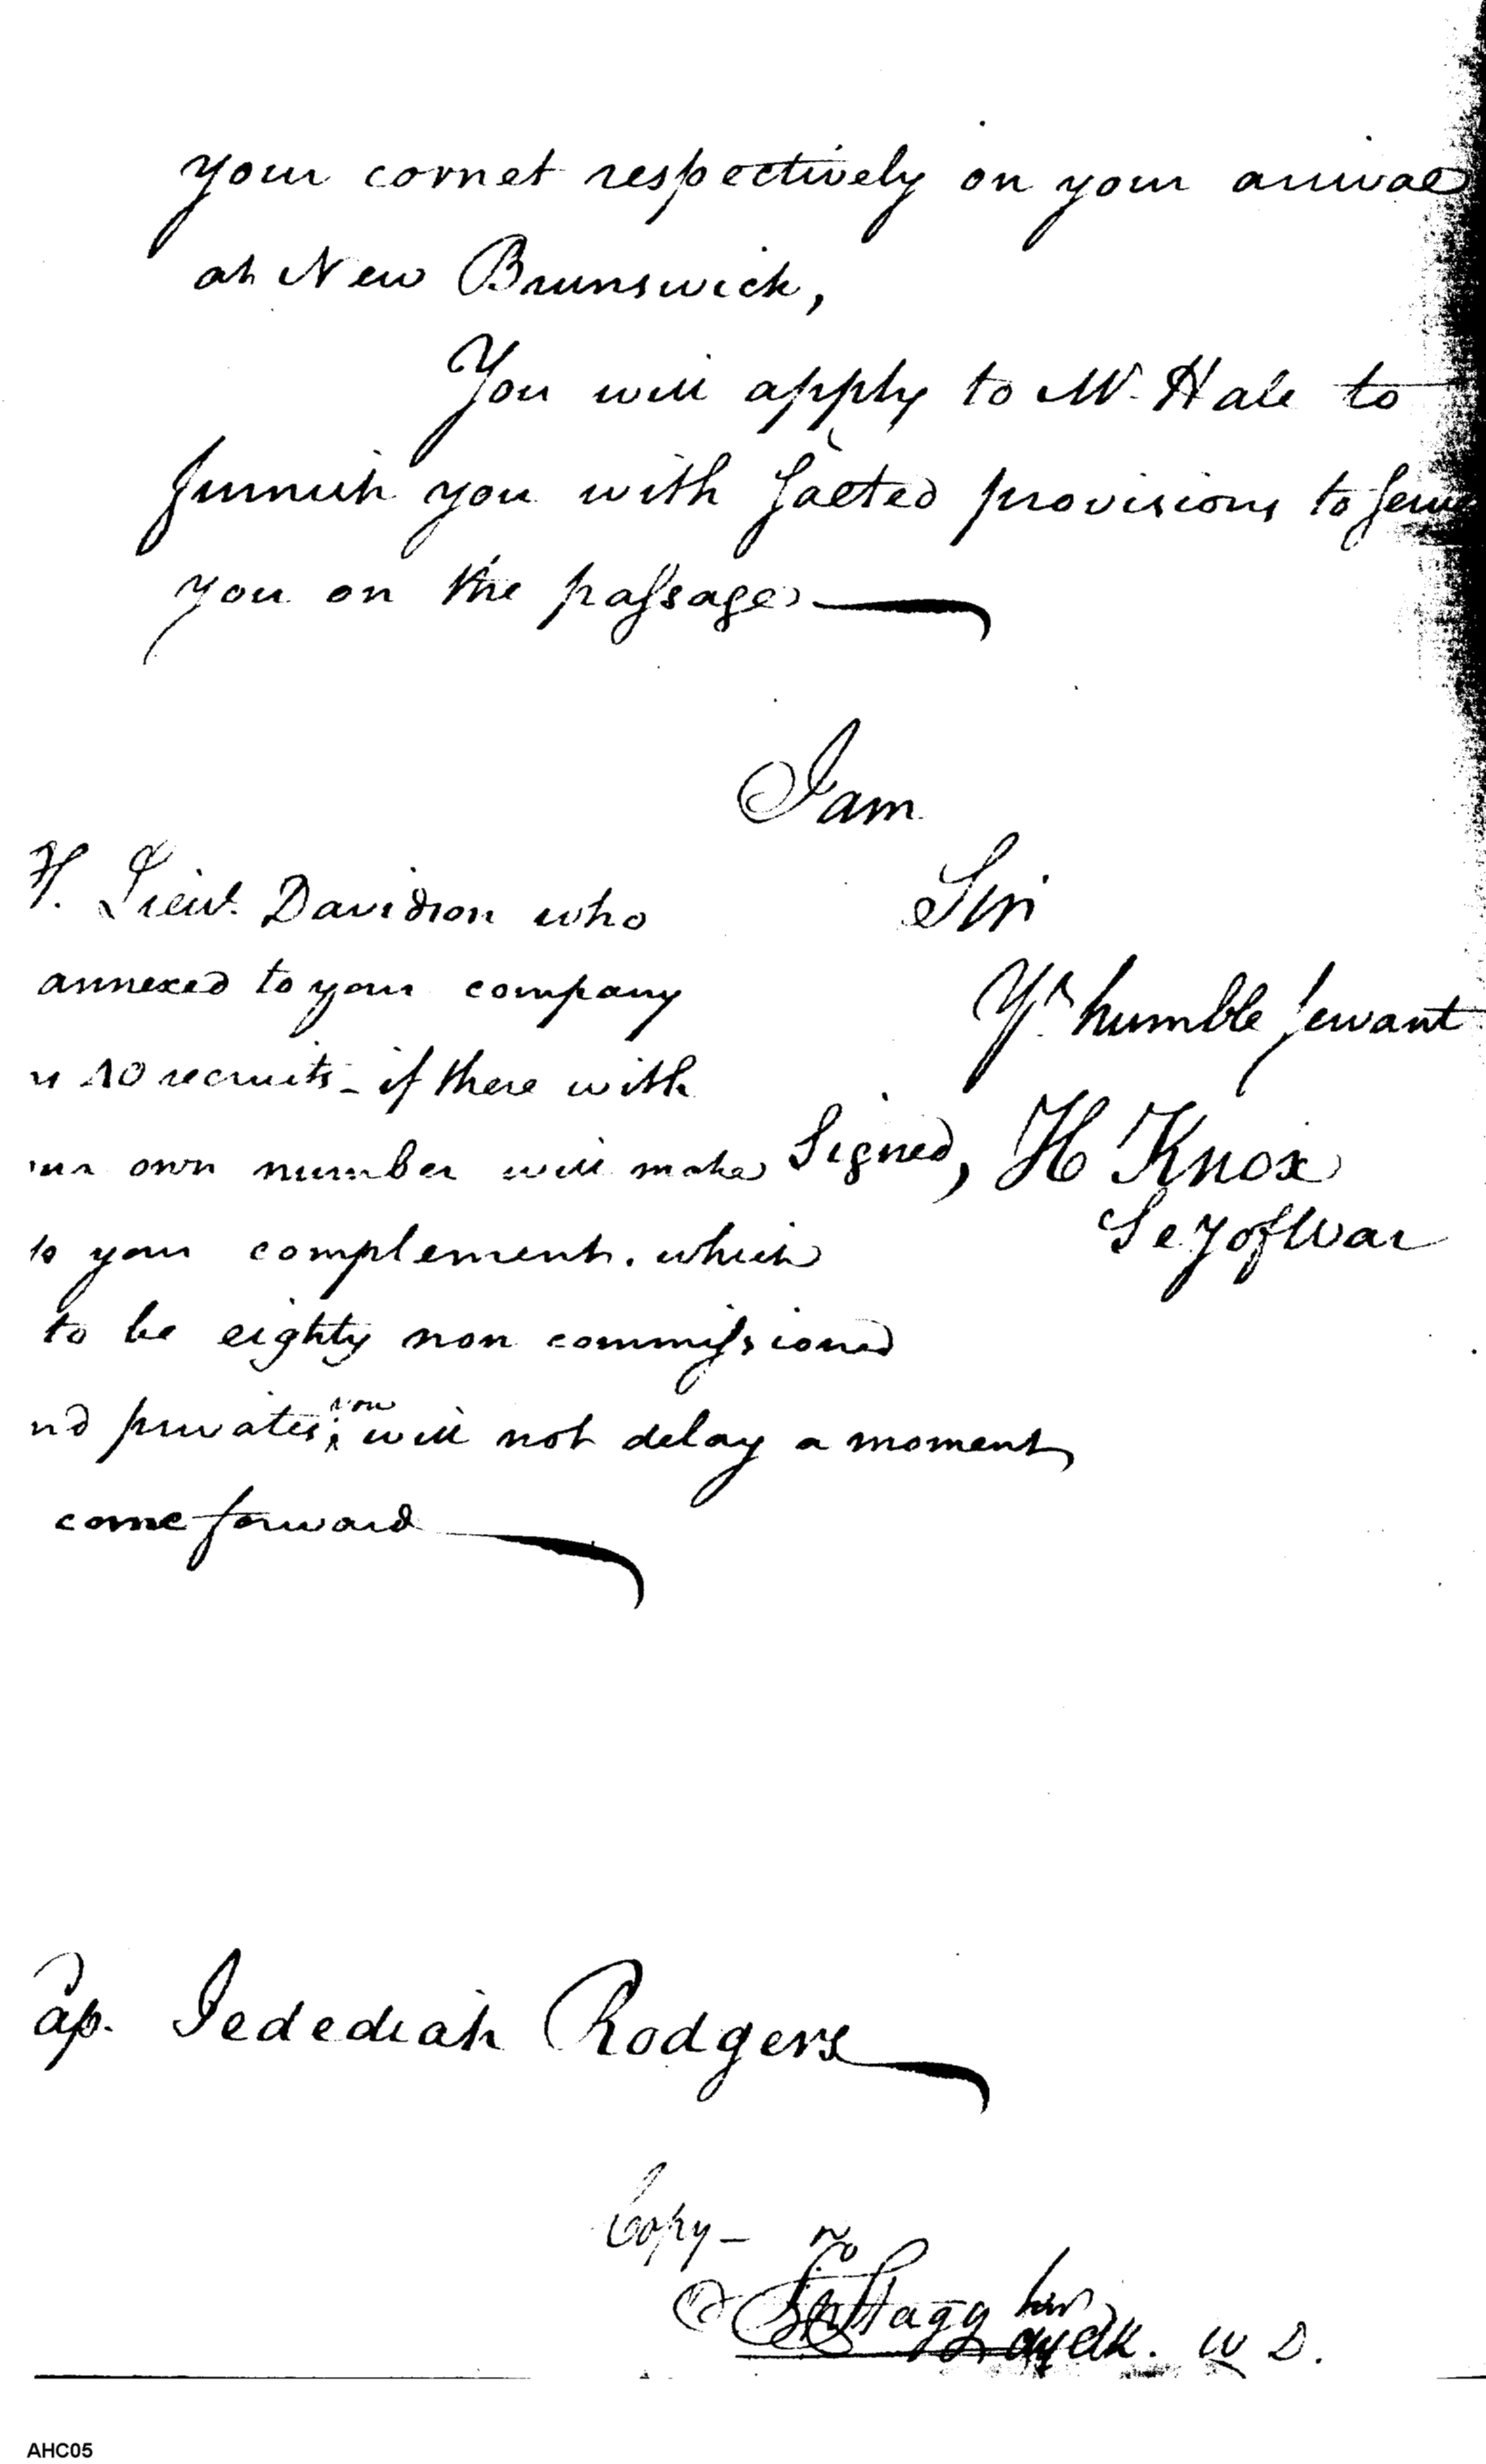 your cornet respectively on your arrival
at New Brunswick,
You will apply to Mr. Hale to
furnish you with salted provisions to serve
you on the passage
I am
Sir
Yr. humble servant
Signed, H Knox
Secy of War
Lieut. Davidson who
annexed to your company
10 recruits - if these with
own number will make
to your complement. which
to be eighty non commissioned
nd privates; you will not delay a moment
come forward
ap. Jedediah Rodgers
Copy -
Jno Stagg Junr
Clk. W D.
AHC05